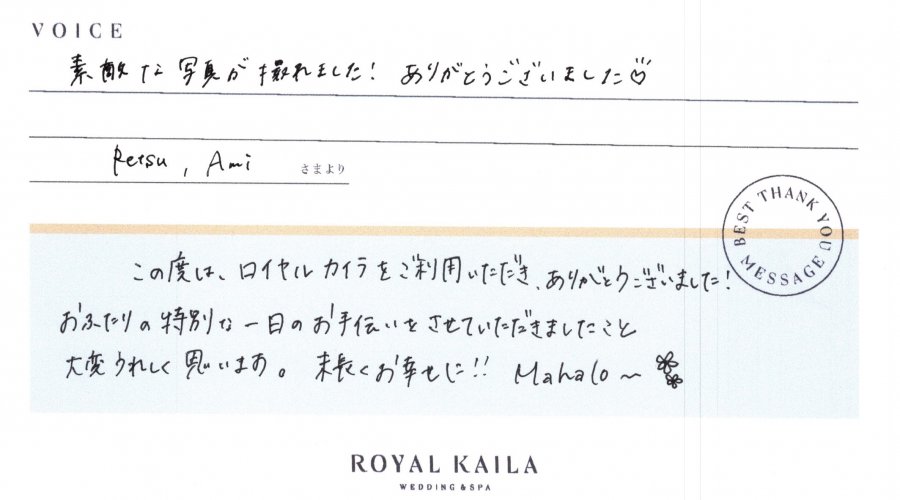 VOICE
素敵な写真が撮れました! ありがとうございました♡
Retsu, Ami さまより
BEST THANK YOU MESSAGE
この度は、ロイヤルカイラをご利用いただき、ありがとうございました!
おふたりの特別な一日のお手伝いをさせていただきましたこと
大変うれしく思います。 末長くお幸せに!! Mahalo〜
ROYAL KAILA
WEDDING & SPA